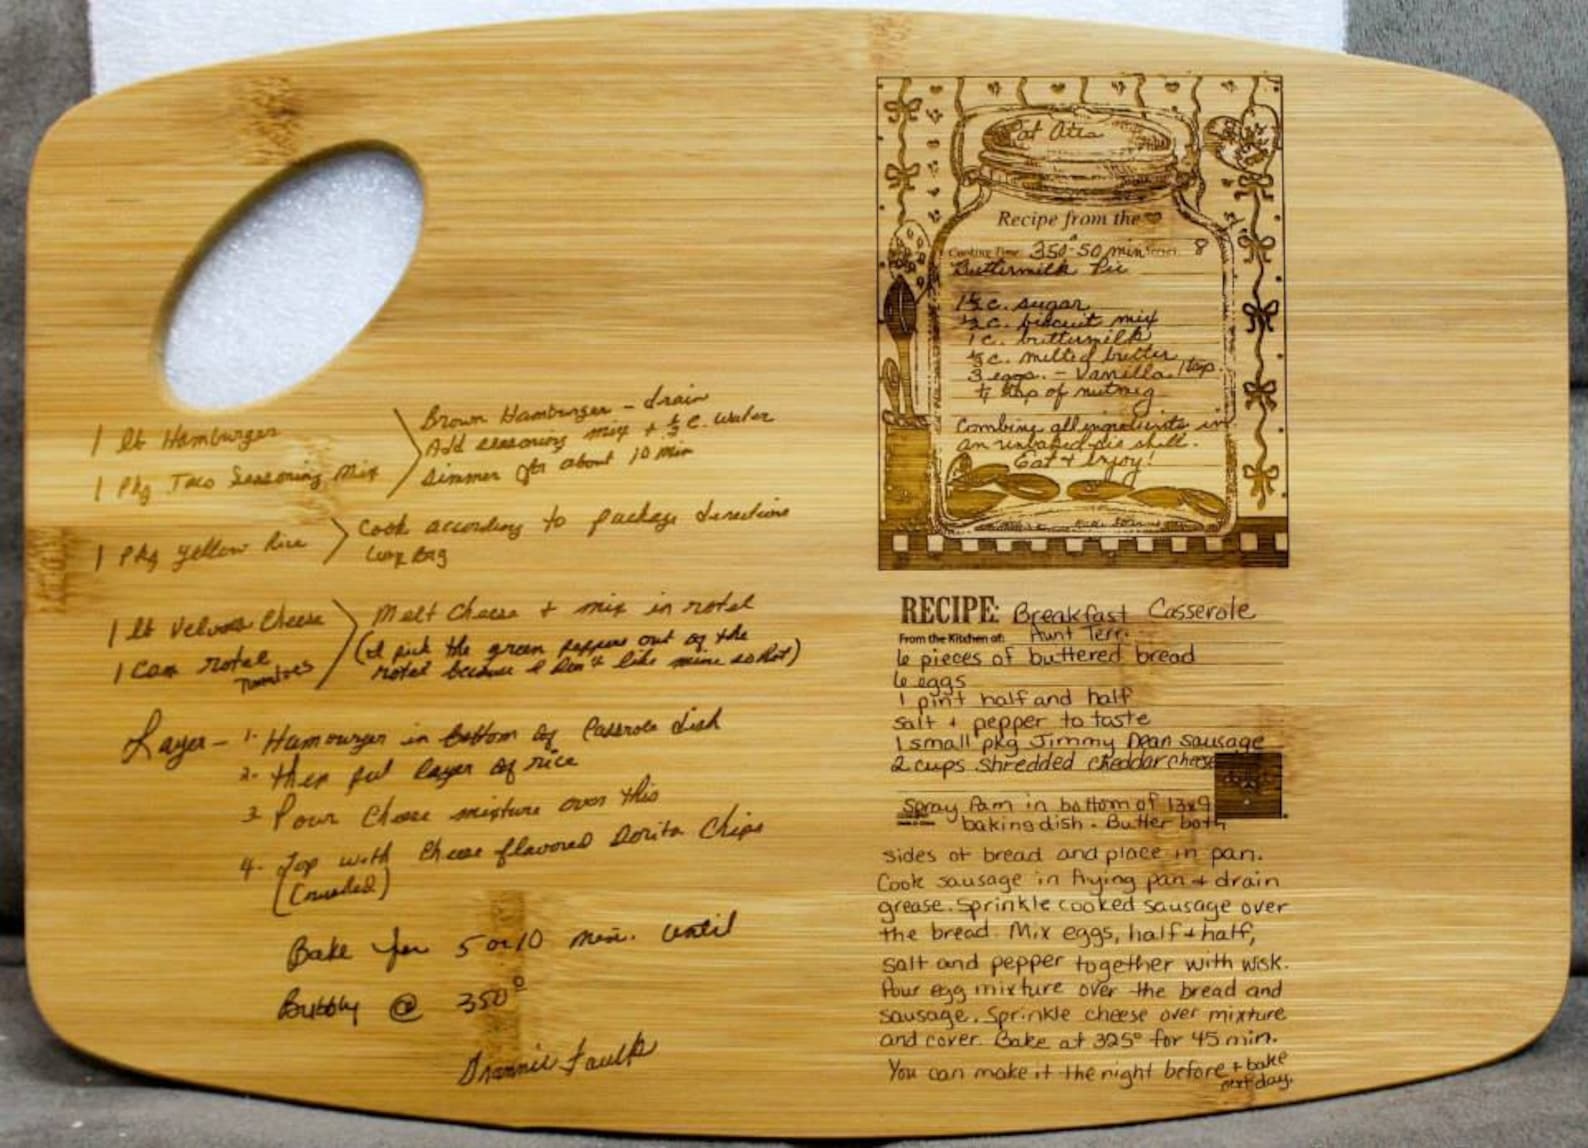 1 lb Hamburger
1 Pkg Taco Seasoning Mix
Brown Hamburger - drain
Add seasoning mix + ½ c. water
Simmer for about 10 min
1 Pkg Yellow Rice
Cook according to package directions
1 lb Velveeta Cheese
1 Can rotel
Tomatoes
Melt Cheese + mix in rotel
(I pick the green peppers out of the
rotel because I don't like mine so Hot)
Layer - 1. Hamburger in bottom of Casserole dish
2. then put layer of rice
3. Pour Cheese mixture over this
4. Top with Cheese flavored Dorito Chips
(Crushed)
Bake for 5 or 10 min. until
Bubbly @ 350°
Faulk
Pat
Recipe from the
Cooking Time 350°-50 min Serves 8
Buttermilk Pie
c. sugar
½ c. biscuit mix
1 c. buttermilk
c. melted butter
3 eggs. - Vanilla 1 tsp.
tsp of nutmeg
Combine all ingredients in
an unbaked pie shell.
Eat + Enjoy!
RECIPE: Breakfast Casserole
From the Kitchen of: Aunt Terri
6 pieces of buttered bread
6 eggs
1 pint half and half
salt + pepper to taste
1 small pkg Jimmy Dean sausage
2 cups shredded cheddar cheese
Spray Pam in bottom of 13x9
baking dish. Butter both
sides of bread and place in pan.
Cook sausage in frying pan + drain
grease. Sprinkle cooked sausage over
the bread. Mix eggs, half + half,
salt and pepper together with wisk.
Pour egg mixture over the bread and
sausage. Sprinkle cheese over mixture
and cover. Bake at 325° for 45 min.
You can make it the night before + bake
next day.